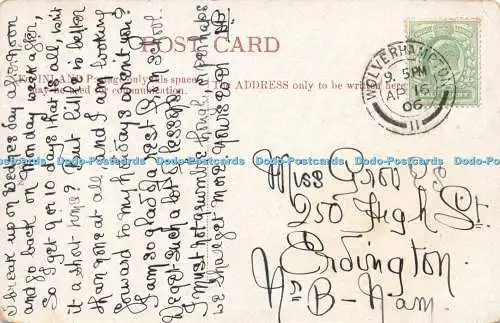 I break up on Wednesday afternoon
and go back on Monday week after,
So I get 9 or 10 days that is all, isn't
it a short time? But little is better
than none at all, and I am looking
forward to my holidays aren't you?
I am so glad of a rest from School.
We get such a lot of lessons.
I must not grumble though, or perhaps
we shall get more
POST CARD
FOR INLAND Postage only this space
may be used for communication.
The ADDRESS only to be written here
WOLVERHAMPTON
9. 5PM
AP 16
06
11
Miss
250 High St.
Erdington
Nr B-ham.
Dodo-Postcards Dodo-Postcards Dodo-Postcards Dodo-Postcards Dodo-Postcards